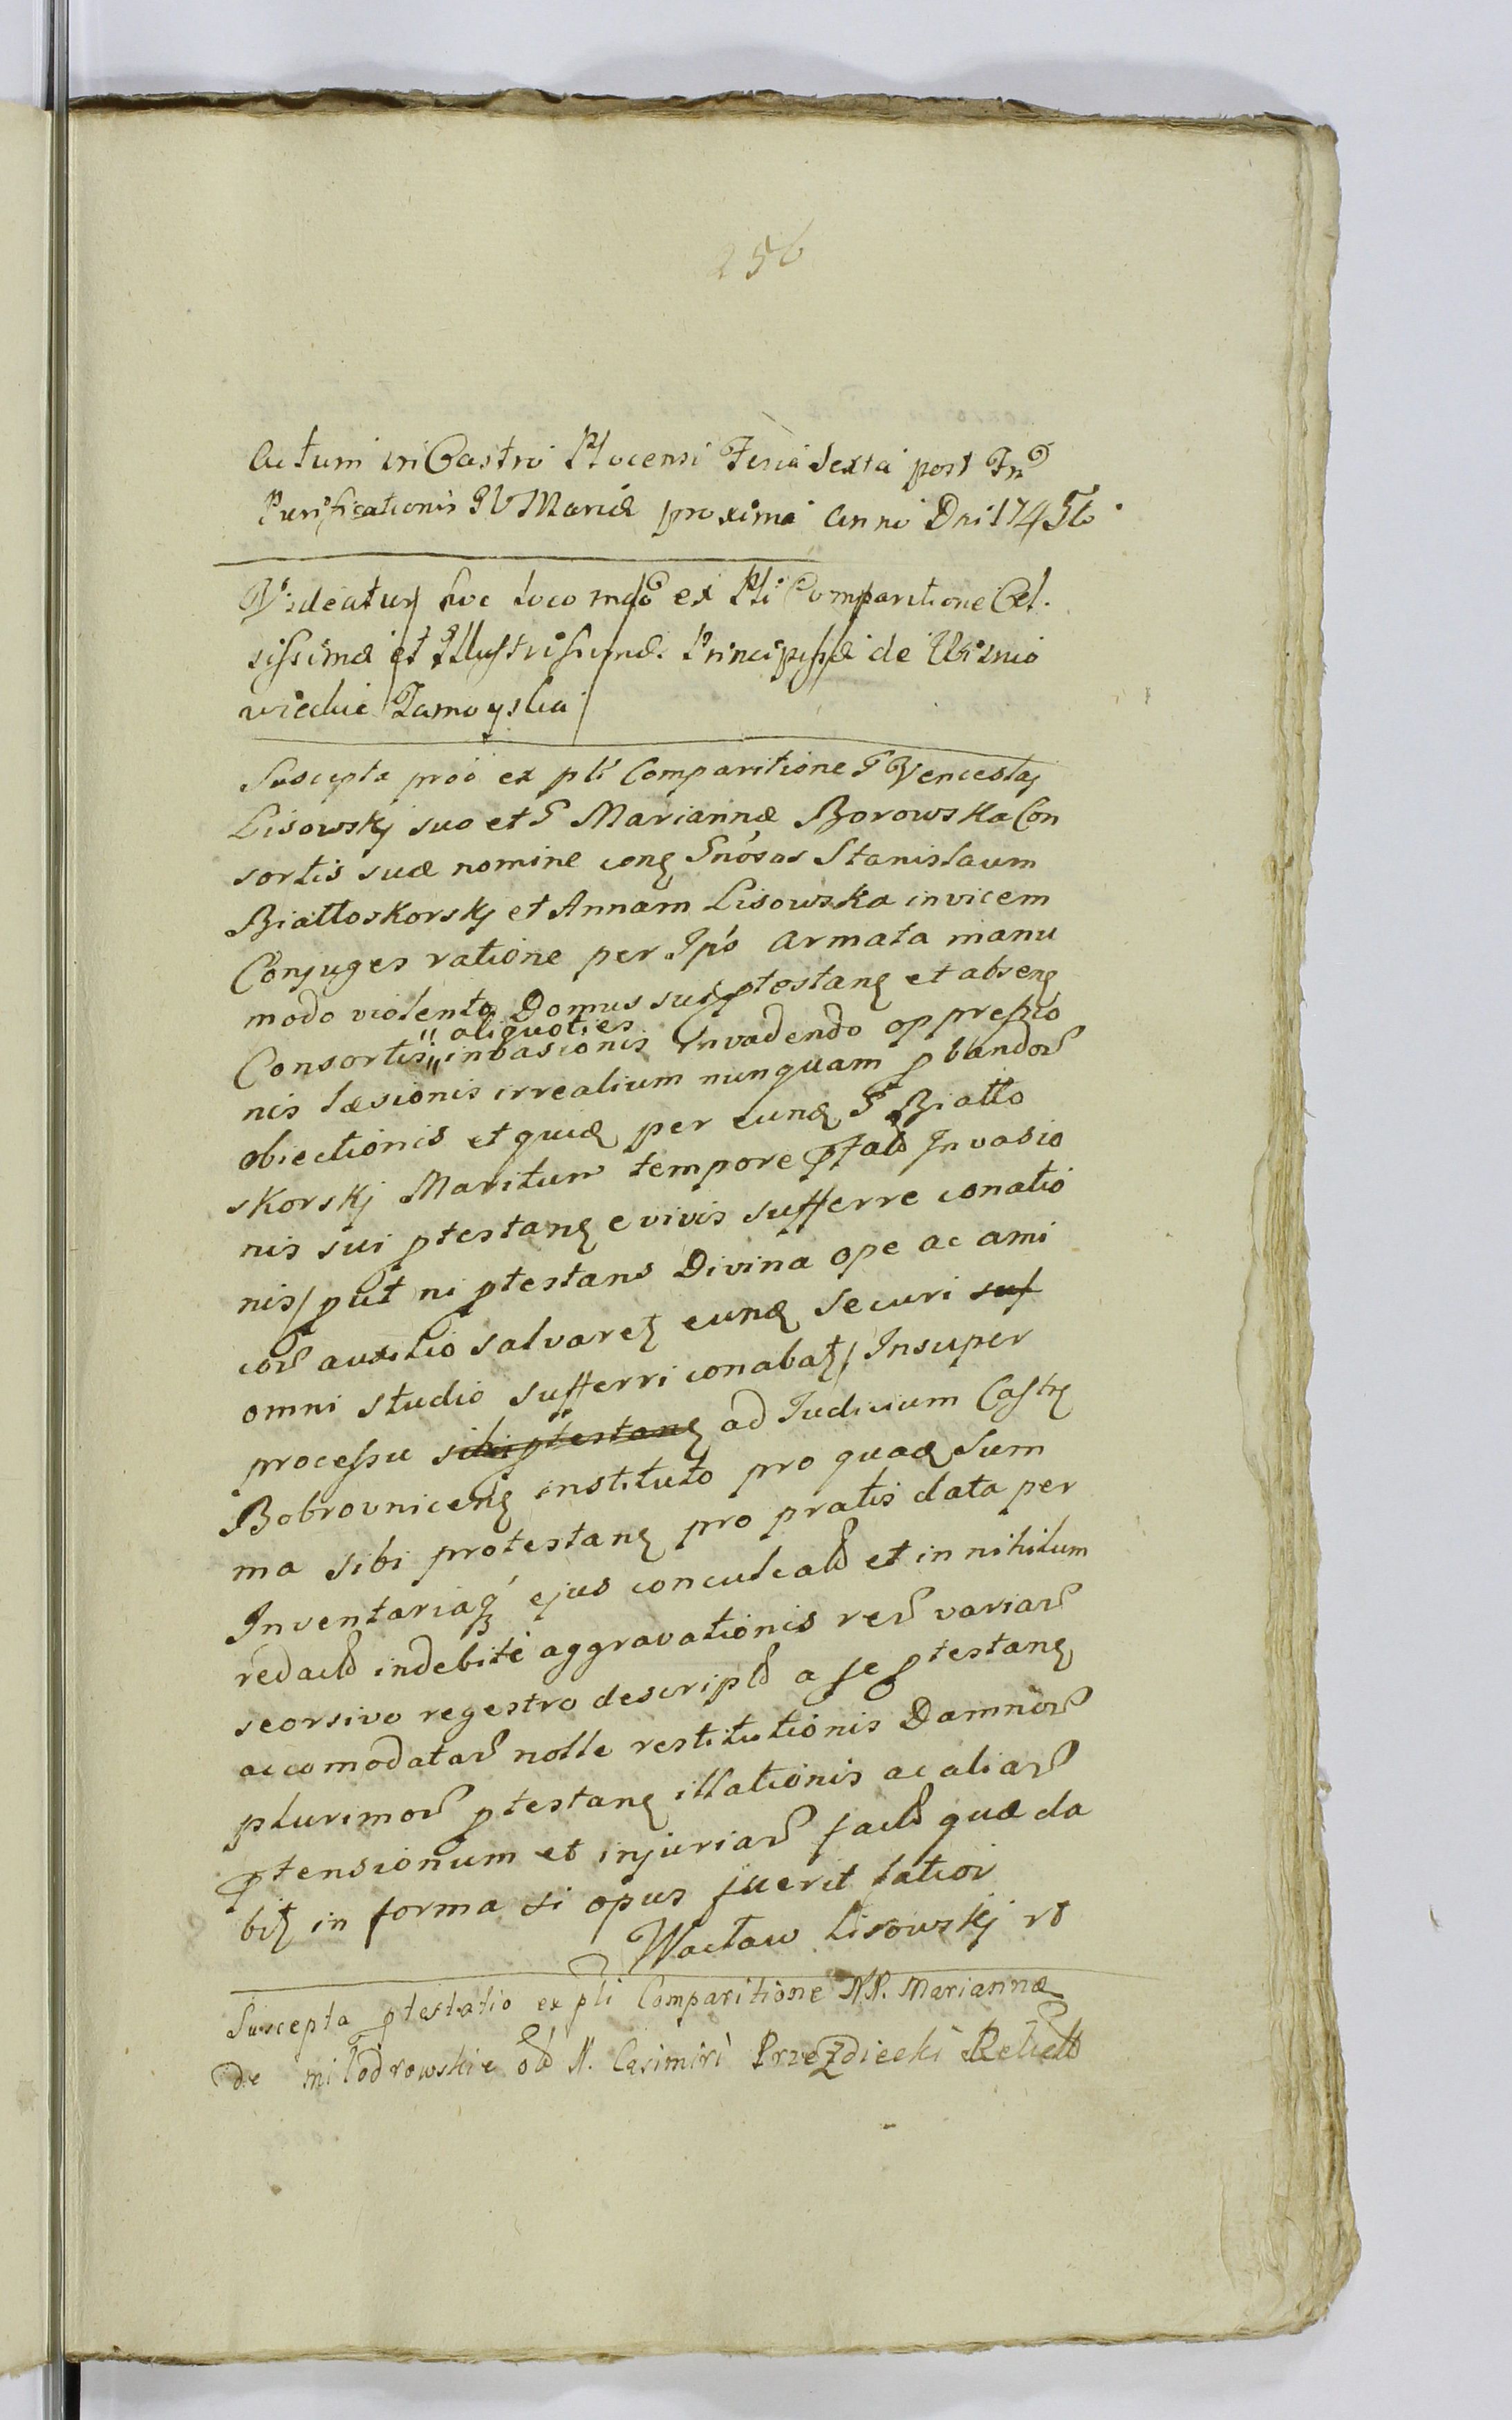 256
Actum in Castro Plocensi Feria Sexta post Frm
Purificationis BV Mariæ proxima Anno Dni 1745to
Videatur hoc loco mdo ex Pli Comparitione Cel.
sissimæ et Illustrissimæ Principissæ de Wisnio
wieckie Zamoyska
Suscepta proo ex pli Comparitione G Venceslaj
Lisowskj suo et G Mariannæ Borowska Con
sortis suæ nomine cong Gnosos Stanislaum
Białłoskorskj et Annam Lisowska invicem
Conjuges ratione per Ipso Armata manu
modo violento Domus sui ptestang et abseng
aliquoties
Consortis invasionis Invadendo oppressio
nis læsionis irrealium nunquam pbandor
obiectionis et quidē per eundē G Białło
skorskj Maritum tempore ptalo Invasio
nis sui ptestang e vivis sufferre conatio
nis/put ni ptestans Divina ope ac ami
cor auxilio salvaret eundē securi suf
omni studio sufferri conabat/ Insuper
processu sibi ptestang ad Judicium Castr
Bobrovniceng instituto pro quadē sum
ma sibi protestang pro pratis data per
Inventariaq ejus conculcalo et in nihilum
redaclo indebite aggravationis rer variar
seorsivo regestro descriplo a se ptestang
accomodatar nolle restitutionis Damnor
plurimor ptestang illationis ac aliar
ptensionum et injuriar faclo quæ da
bit in forma si opus fuerit latior
Wacław Lisowskj
Suscepta ptestatio ex pli Comparitione NN. Mariannæ
de miłodrowskie olo N. Casimiri Przezdiecki Relicto